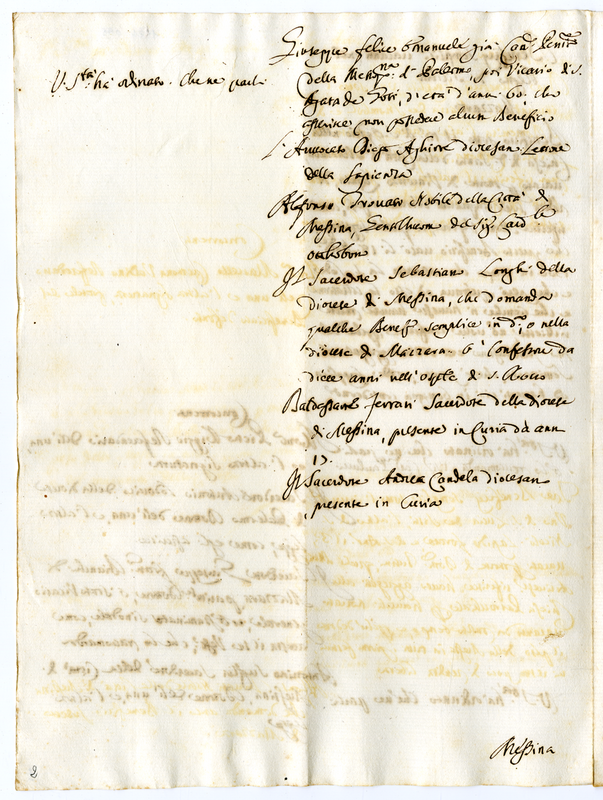 Giuseppe felice Emanuele già Can.co Penit.re
della Metrop.na di Palermo, poi Vicario di S.
Agata de Goti, d'età d'anni 60, che
asserisce non possedere alcun Beneficio
V. S.tà ha ordinato che ne parli
L'Avvocato Diego Aghirre diocesan Lettore
della Sapienza
Alfonso Trovato Nobile della Città di
Messina, Gentilhuom del Sig.r Card.le
Ottobon
Il Sacerdote Sebastian Longhi della
diocese di Messina, che domanda
qualche Benef.o semplice in d.a, o nella
diocese di Mazzara. È Confessore da
diece anni nell'Osp.le di S. Rocco
Baldassare Ferrari Sacerdote della diocese
di Messina, presente in Curia da ann
Il Sacerdote Andrea Candela diocesan
presente in Curia
Messina
2